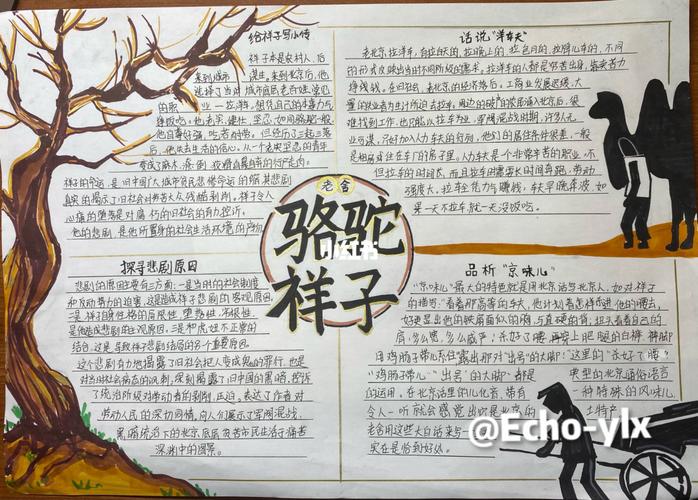 给祥子写小传
祥子本是农村人,后
来到城市谋生。来到北京后,他
选择了当时城市居民老百姓常见
的职业—拉洋车,想凭自己的本事力气
挣饭吃。他老实、健壮、坚忍,如同骆驼一般。
他自尊好强,吃苦耐劳,但经历了三起三落
后,他失去生活的信心,从一个老实坚忍的青年
变成了麻木、潦倒、狡猾自暴自弃的行尸走肉。
祥子的命运,是旧中国广大城市贫民悲惨命运的缩影
真实的揭示了旧社会对劳苦大众残酷剥削。祥子令人
心痛的堕落是对腐朽的旧社会的有力控诉。
他的悲剧,是他所置身的社会生活环境的产物
话说"洋车夫"
老北京拉洋车,有拉白天的,拉晚上的,拉包月的,拉牌儿车的,不同
的形式反映出当时不同阶级的需求。拉洋车的人都是穷苦出身,靠卖苦力
挣钱钱,在旧社会,老北京的经济落后,工商业发展迟缓,大
很难找到工作,也只能以拉车为业,军阀混战时期,许多人无
业可谋,只好加入人力车夫的行列,他们的居住条件很差,一般
是租房或住在车厂的房子里。人力车夫是一个非常辛苦的职业,不
但拉车的时间长,而且拉车时需要长时间奔跑,劳动
强度大,拉车全凭力气赚钱,缺早晚奔波,如
果一天不拉车就一天没饭吃。
老舍
骆驼
祥子
小红书
探寻悲剧原因
悲剧的原因主要有三方面:一是当时的社会制度
和反动势力的迫害,这是造成祥子悲剧的客观原因,二
是祥子自身性格的局限性、堕落性、软弱性,
是他造成悲剧的主观原因。三是和虎妞不正常的
结合,这是导致祥子悲剧结局的另个重要原因。
这个悲剧有力地揭露了旧社会把人变成鬼的罪行,也是
对当时社会病态的讽刺,深刻揭露了旧中国的黑暗,控诉
了统治阶级对劳动者的剥削、压迫,表达了作者对
劳动人民的深切同情,向人们展示了军阀混战,
黑暗统治下的北京底层贫苦市民生活于痛苦
深渊中的图景。
品析"京味儿"
"京味儿"最大的特色就是用北京话写北京人,如对祥子
的描写:"看着那高等的车夫,他计划着怎样杀进他的腰去,
好更显出他的铁扇面似的胸,与直硬的背;扭头看看自己的
肩,多么宽,多么威严!杀好了腰,再穿上肥腿的白裤,裤脚
用鸡肠子带儿系住,露出那对"出号"的大脚!"这里的"杀好了腰"
"鸡肠子带儿""出号"的大脚",都是典型的北京通俗语言
的运用。在北京话里的儿化音,带有一种特殊的风味儿
令人一听就会感觉出它是北京的土特产。
老舍用这些大白话来写
实在是恰到好处。
@Echo-ylx